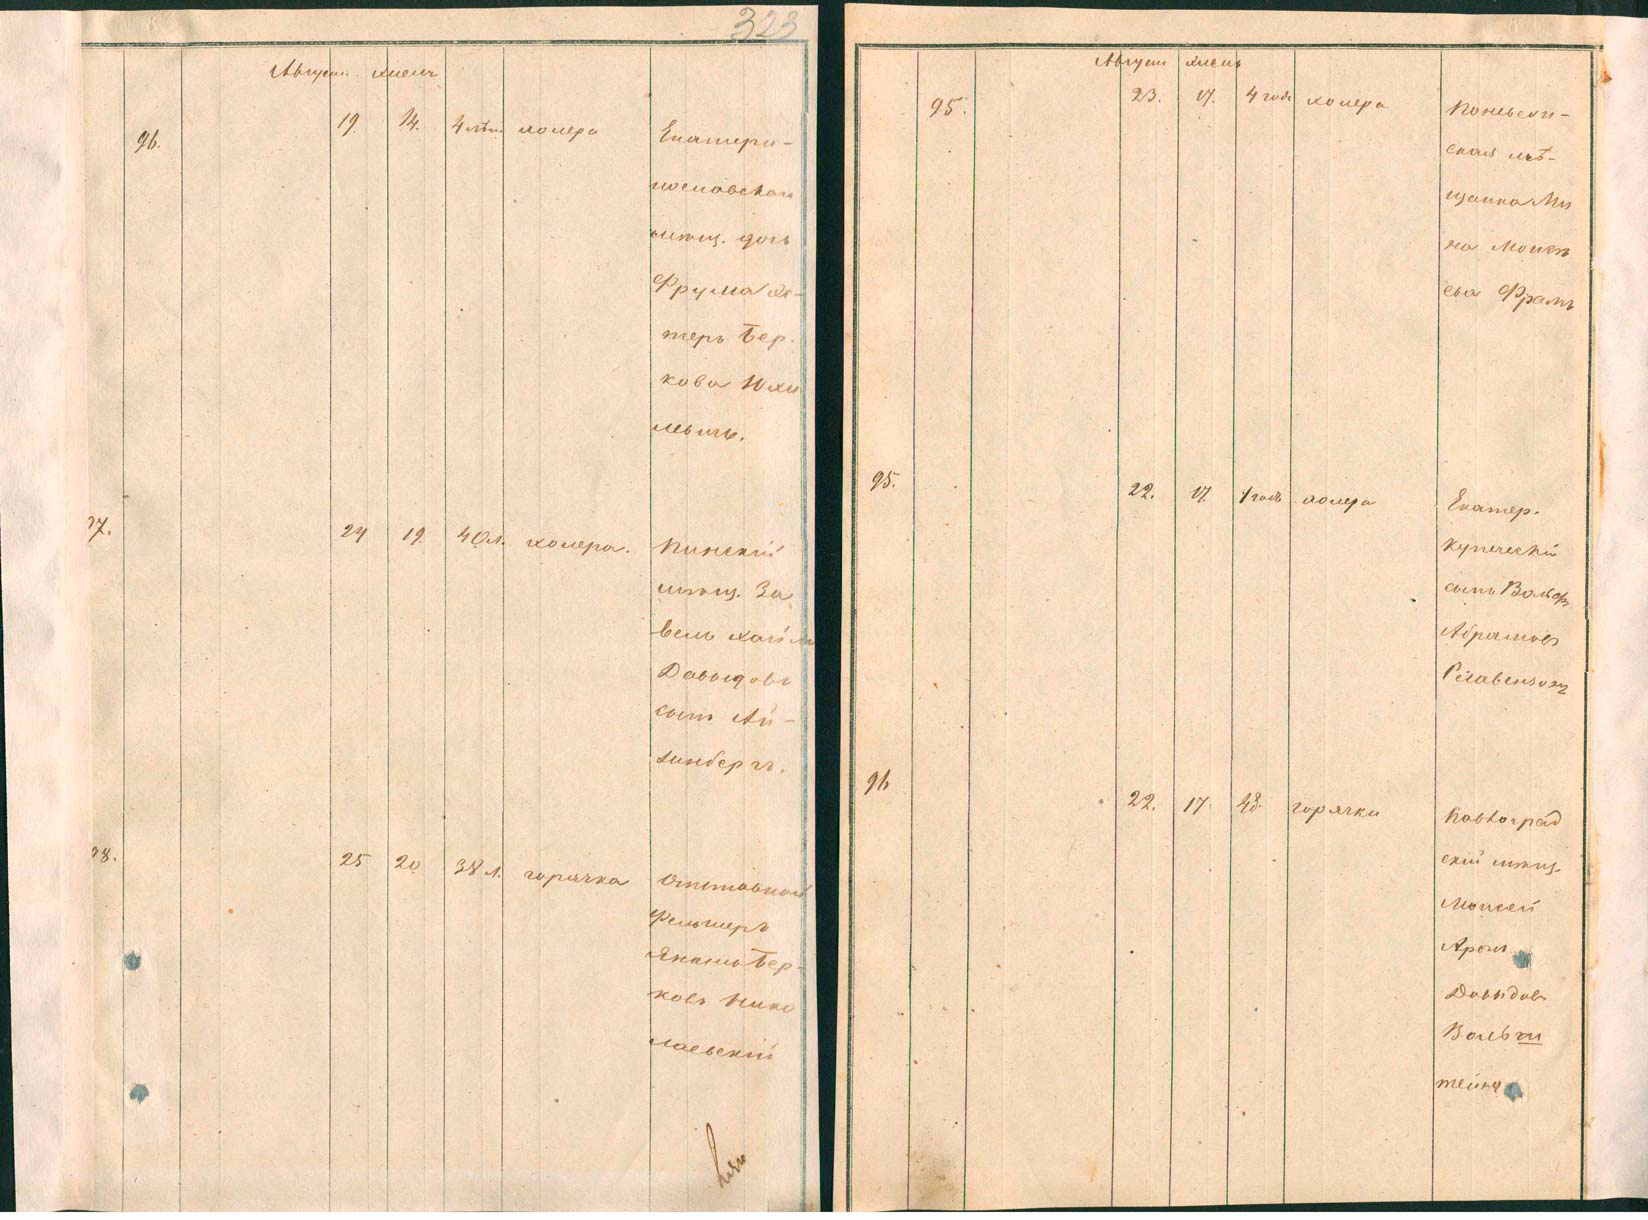 323
Август
96. 19. 14. 4 холера
Екатери-
нославская
мѣщ. дочь
Фрума Эс-
теръ Бер-
кова Юхи
левичъ.
97. 24 19. 40 л. холера.
Пинскій
мѣщ. За
вель Хаимъ
Давидовъ
сынъ Ай-
зинбергъ.
98. 25 20. 38 л. горячка
Отставной
Фельшеръ
Бер-
ковъ Нико
лаевскій
Август
95. 23. 17. 4 года холера
ская мѣ-
щанка Ми
на Моисе
ева Франъ
95. 22. 17. 1 годъ холера
Екатер.
купеческій
сынъ Вольфъ
Абрамовъ
96 22. 17. 48. горячки
Павлоград
скій мѣщ.
Моисей
Аронъ
Давидовъ
Вольш
тейнъ